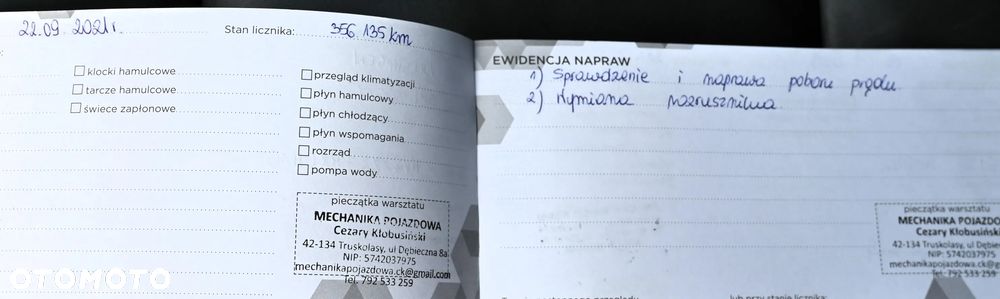 22.09.2021r.
Stan licznika: 356 135 km
klocki hamulcowe
tarcze hamulcowe
świece zapłonowe
przegląd klimatyzacji
płyn hamulcowy
płyn chłodzący
płyn wspomagania
rozrząd
pompa wody
pieczątka warsztatu
MECHANIKA POJAZDOWA
Cezary Kłobusiński
42-134 Truskolasy, ul Dębieczna 8a
NIP: 5742037975
mechanikapojazdowa.ck@gmail.com
Tel. 792 533 259
EWIDENCJA NAPRAW
1) Sprawdzenie i naprawa poboru prądu
2) Wymiana rozrusznika
pieczątka warsztatu
MECHANIKA POJAZDOWA
Cezary Kłobusiński
42-134 Truskolasy, ul Dębiec
NIP: 5742037975
mechanikapojazdowa.ck@g
Tel. 792 533 259
lub przy stanie licznika:
OTOMOTO